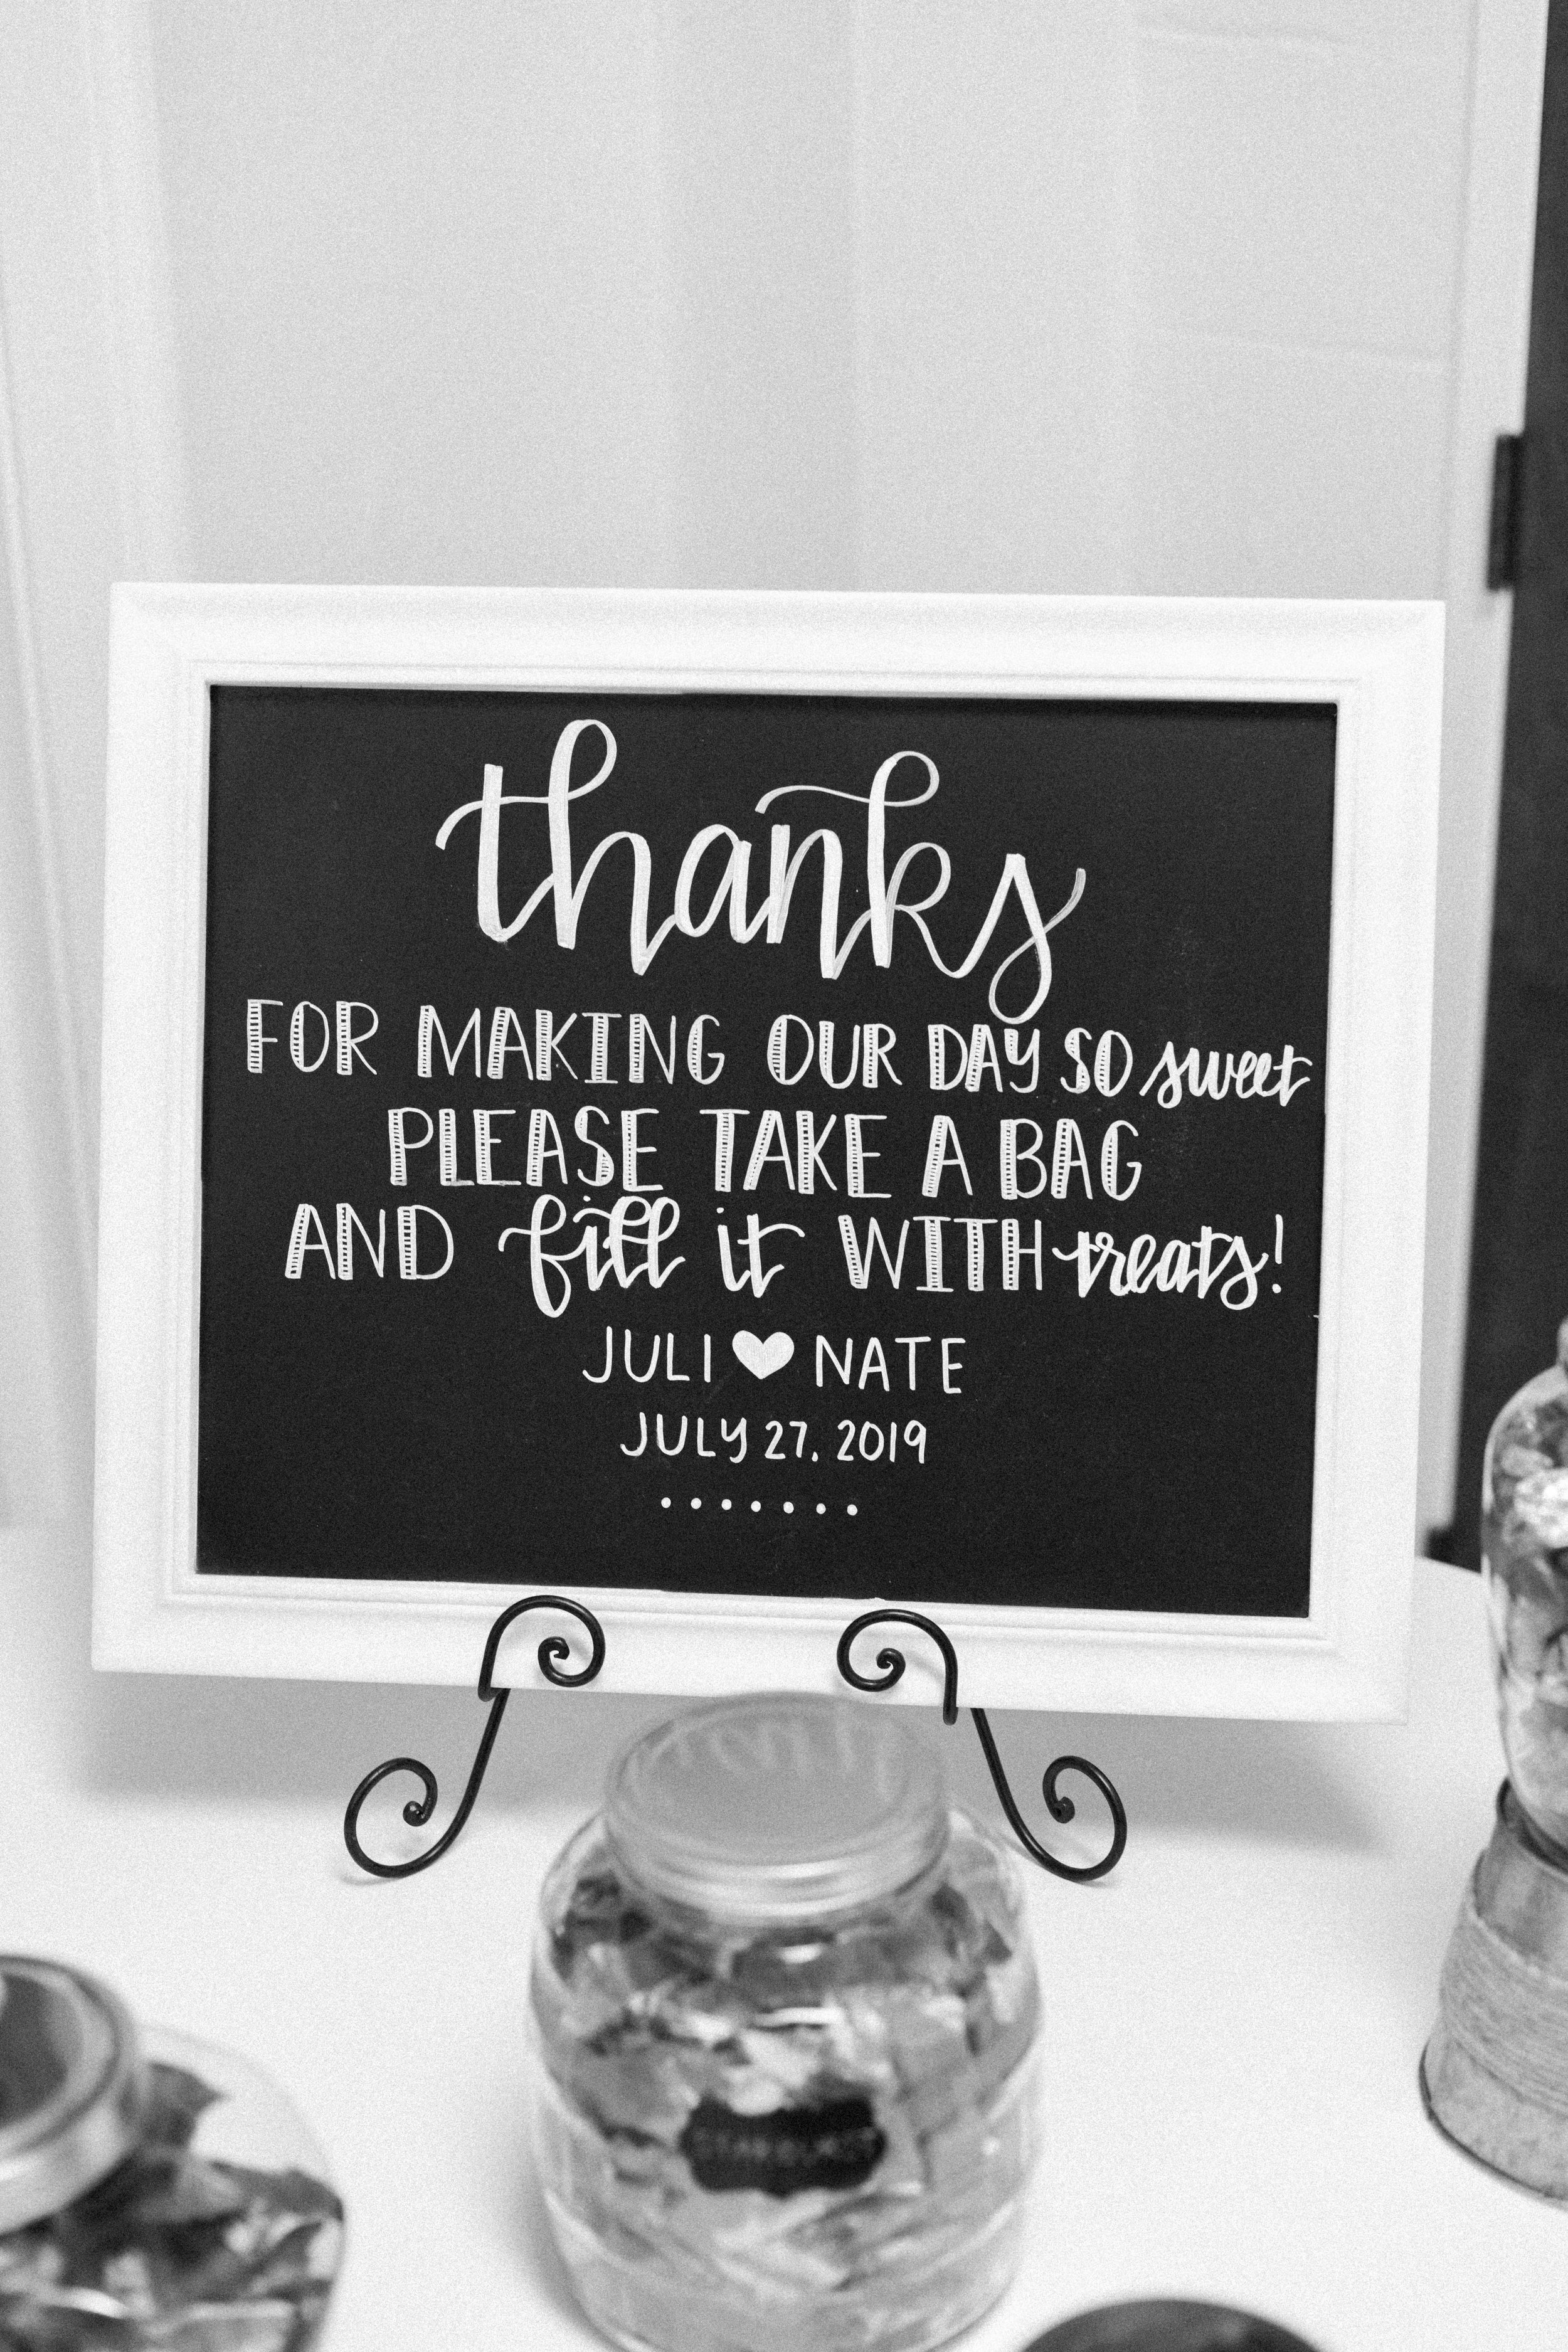 thanks
FOR MAKING OUR DAY SO sweet
PLEASE TAKE A BAG
AND fill it WITH treats!
JULI ♥ NATE
JULY 27, 2019